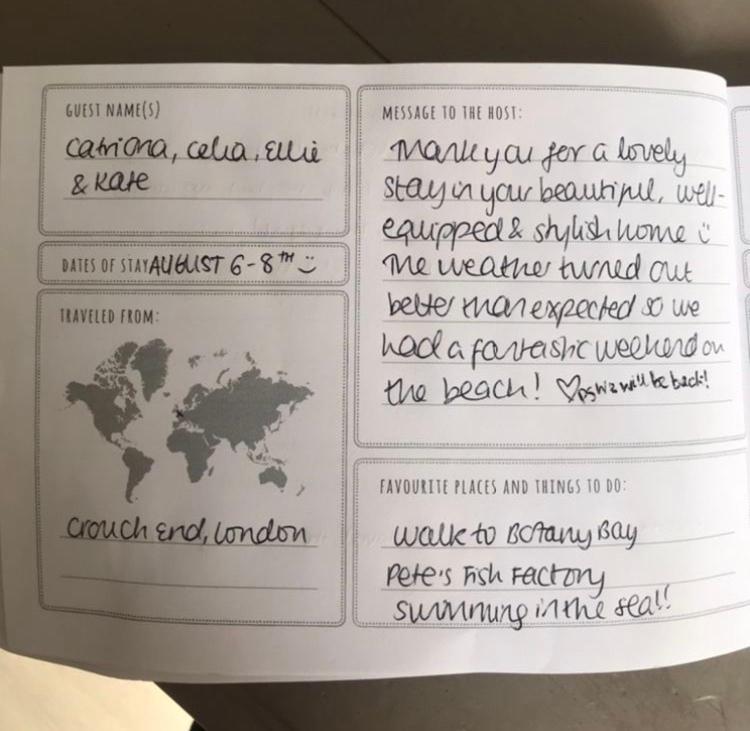 GUEST NAME(S)
Catriona, Celia, Ellie
& Kate
DATES OF STAY AUGUST 6-8TH :)
TRAVELED FROM:
Crouch End, London
MESSAGE TO THE HOST:
Thank you for a lovely
stay in your beautiful, well-
equipped & stylish home :)
The weather turned out
better than expected so we
had a fantastic weekend on
the beach! ♡ ps we will be back!
FAVOURITE PLACES AND THINGS TO DO:
Walk to Botany Bay
Pete's Fish Factory
Swimming in the sea!!